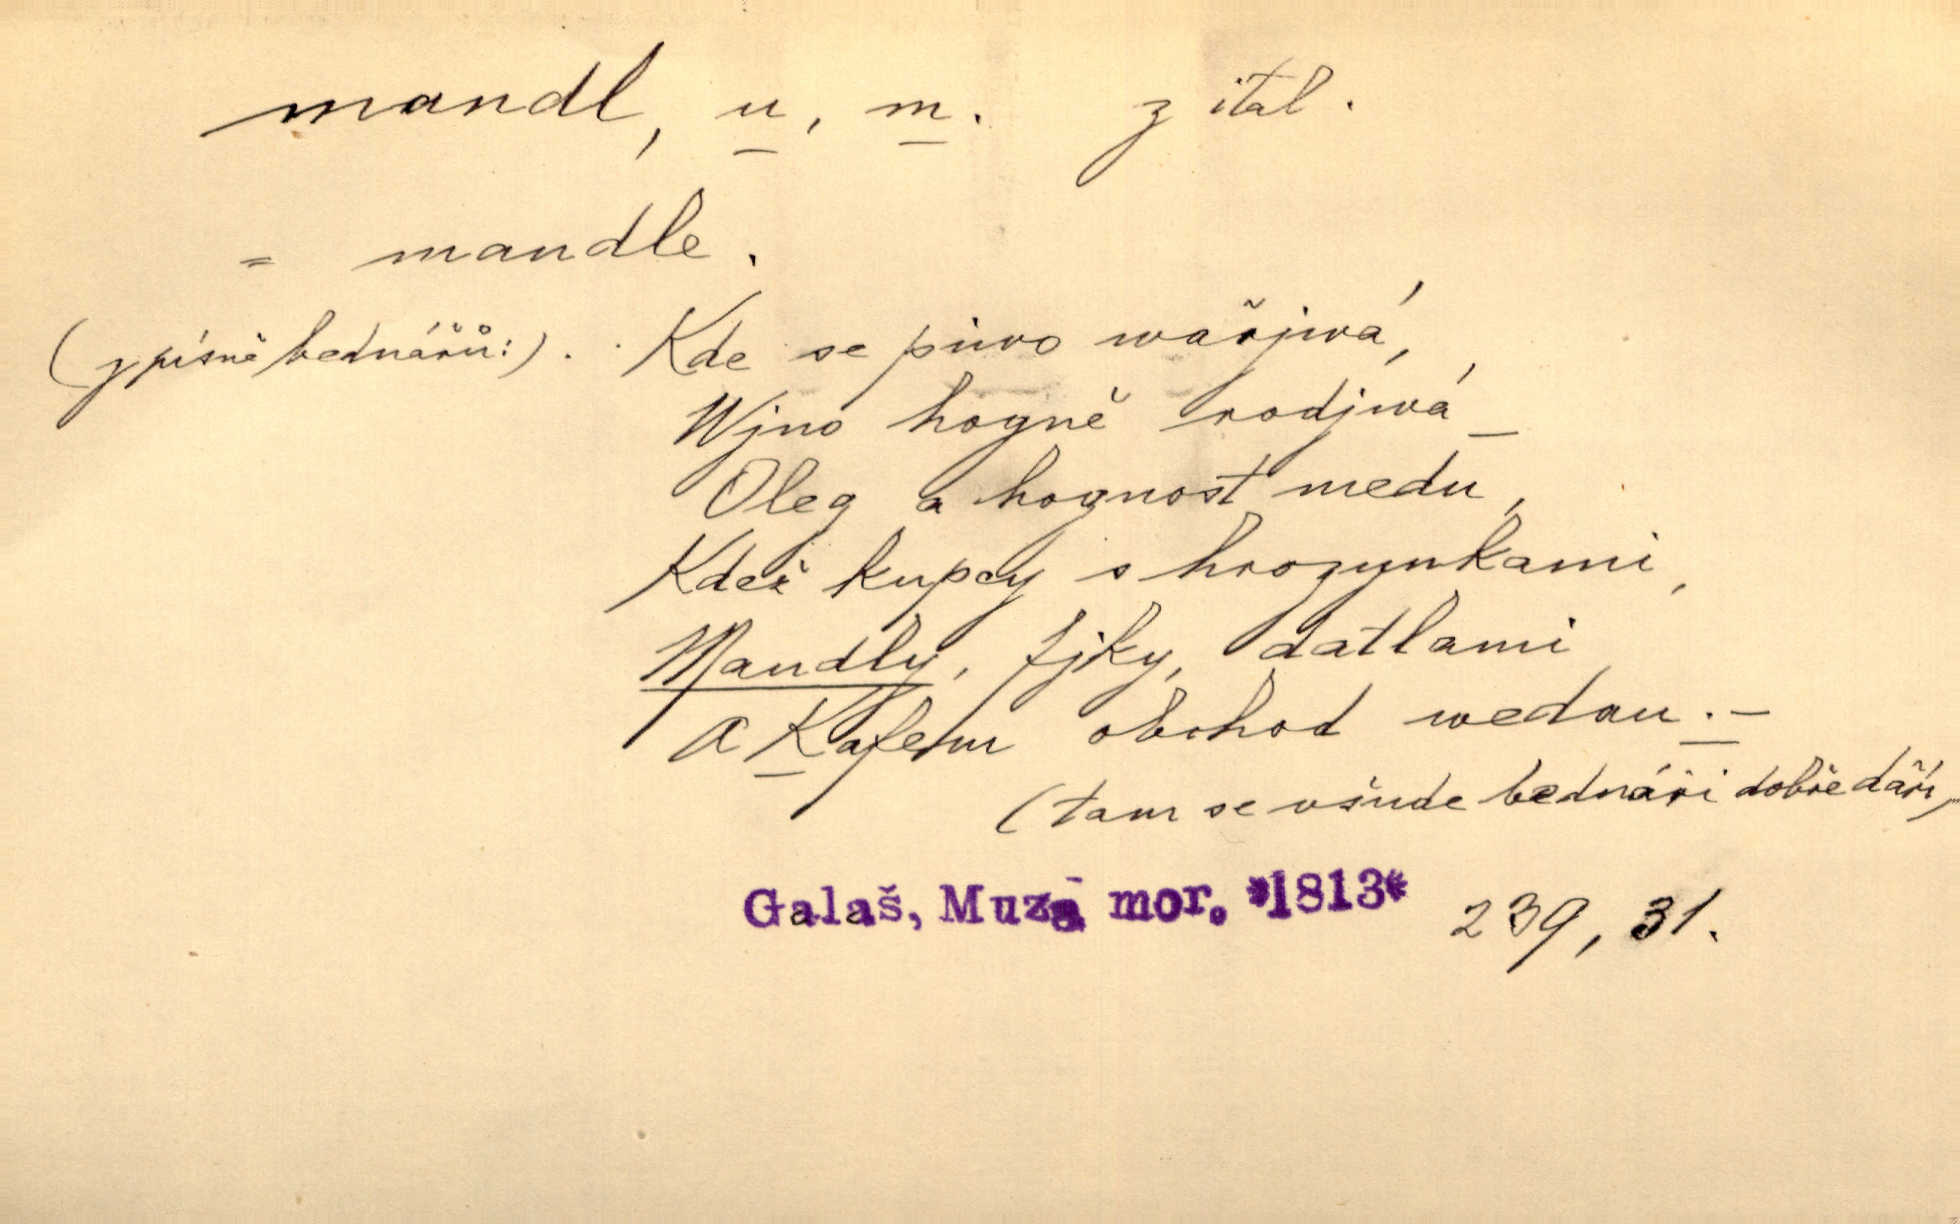 mandl, u, m. z ital.
= mandle.
(z písně bednářů:). Kde se piwo wařjwá,
Wjno hogně rodjwá –
Oleg a hognost medu,
Kdež kupcy s hrozynkami,
Mandly, fjky, datlami
a Kafem obchod wedau. –
(tam se všude bednáři dobře daří)
Galaš, Muza mor. *1813* 239, 31.